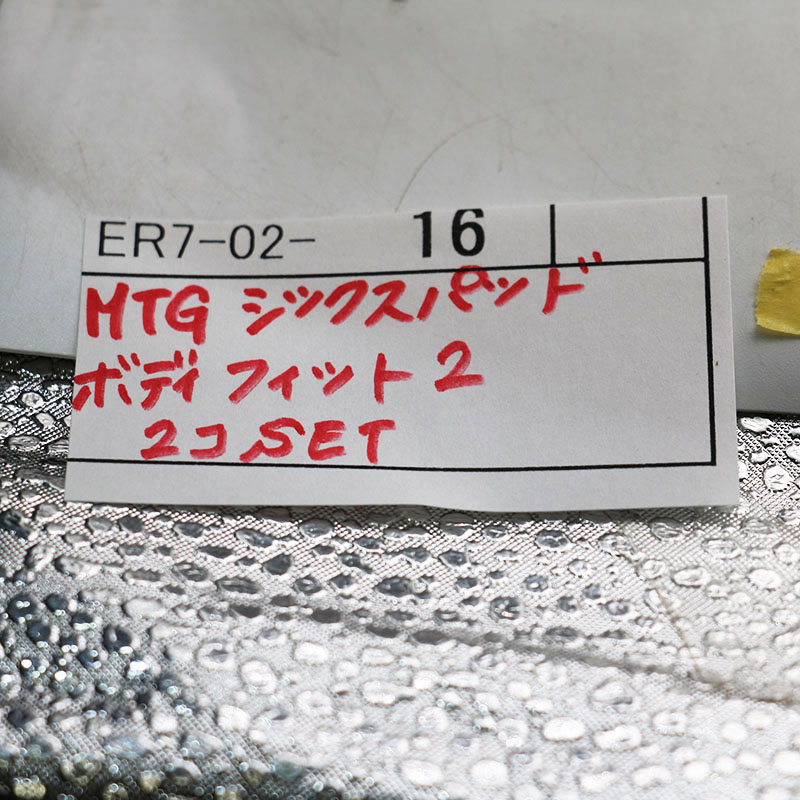 ER7-02- 16
MTG シックスパッド
ボディフィット2
2コSET